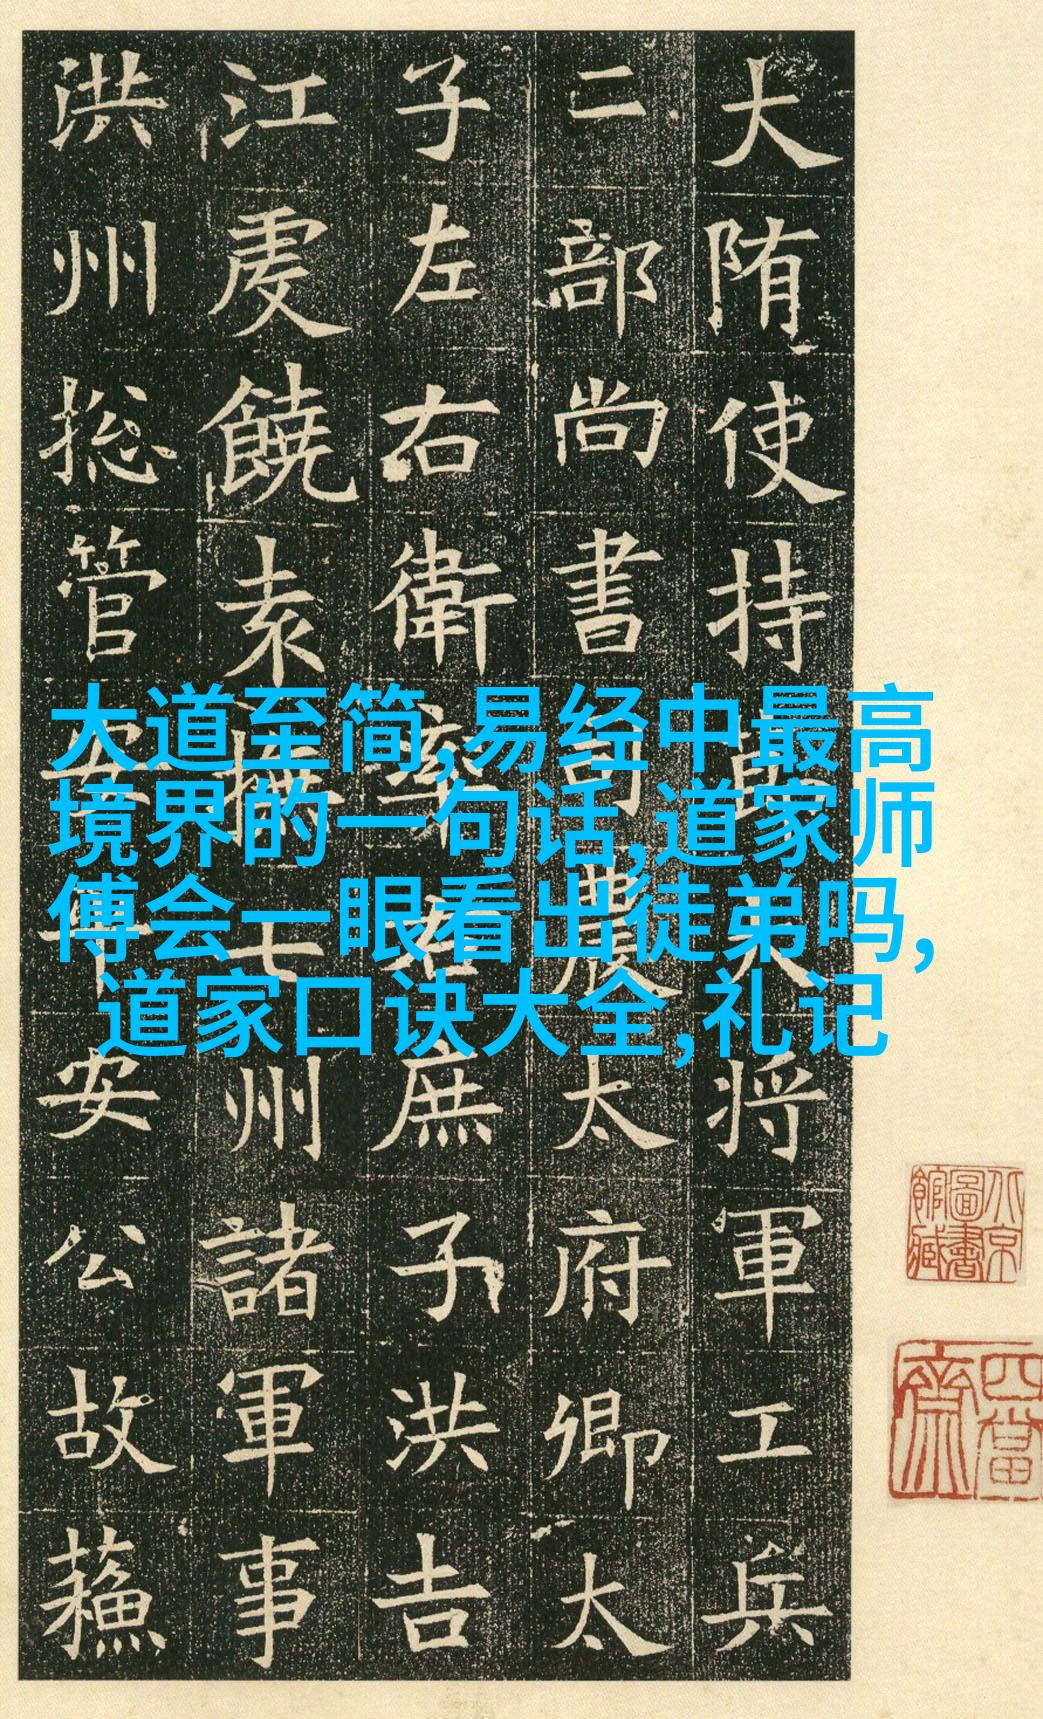 大陏使持節大将軍工兵
二部尚書司農太府卿太
子左右衛率右庶子洪吉
江虔饒袁撫七州諸軍事
洪州捴管安平安公故蘓
大道至简,易经中最高
境界的一句话,道家师
傅会一眼看出徒弟吗,
道家口诀大全,礼记
北京圖書館藏
四當齋